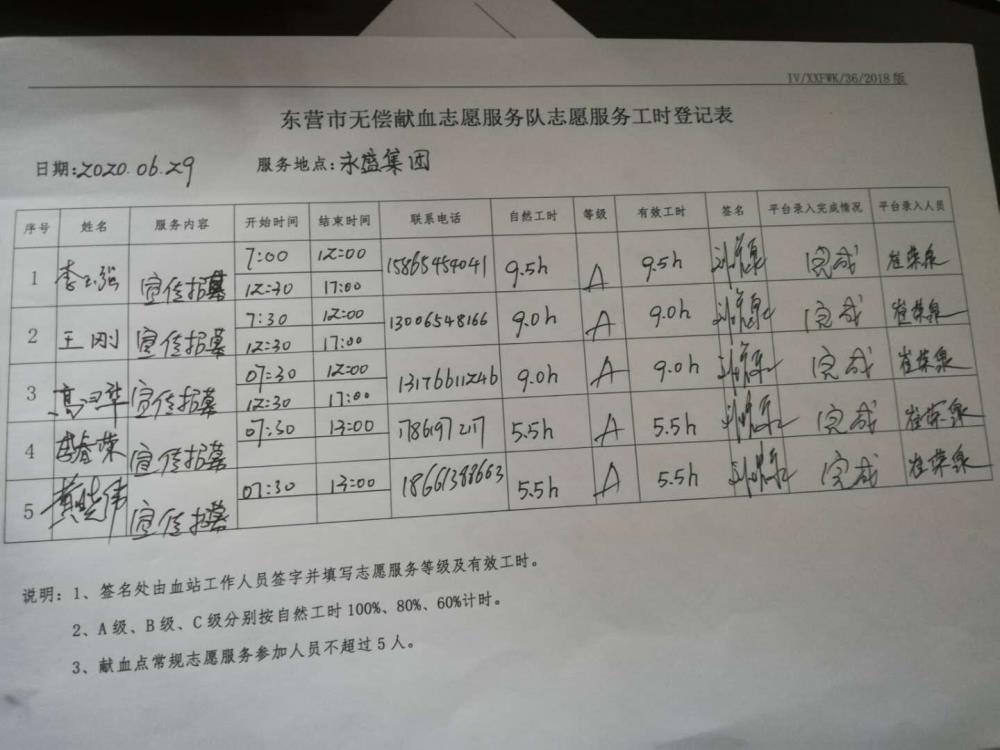 IV/XXFWK/36/2018版
东营市无偿献血志愿服务队志愿服务工时登记表
日期:2020.06.29 服务地点:永盛集团
序号 姓名 服务内容 开始时间 结束时间 联系电话 自然工时 等级 有效工时 签名 平台录入完成情况 平台录入人员
1 李玉强 宣传招募 7:00 12:00 15865454041 9.5h A 9.5h 完成 崔荣泉
12:30 17:00
2 王刚 宣传招募 7:30 12:00 13006548166 9.0h A 9.0h 完成 崔荣泉
12:30 17:00
3 宣传招募 07:30 12:00 13176611246 9.0h A 9.0h 完成 崔荣泉
12:30 17:00
4 宣传招募 07:30 13:00 5.5h A 5.5h 完成 崔荣泉
5 黄晓伟 宣传招募 07:30 13:00 18661388663 5.5h A 5.5h 完成 崔荣泉
说明:1、签名处由血站工作人员签字并填写志愿服务等级及有效工时。
2、A级、B级、C级分别按自然工时100%、80%、60%计时。
3、献血点常规志愿服务参加人员不超过5人。